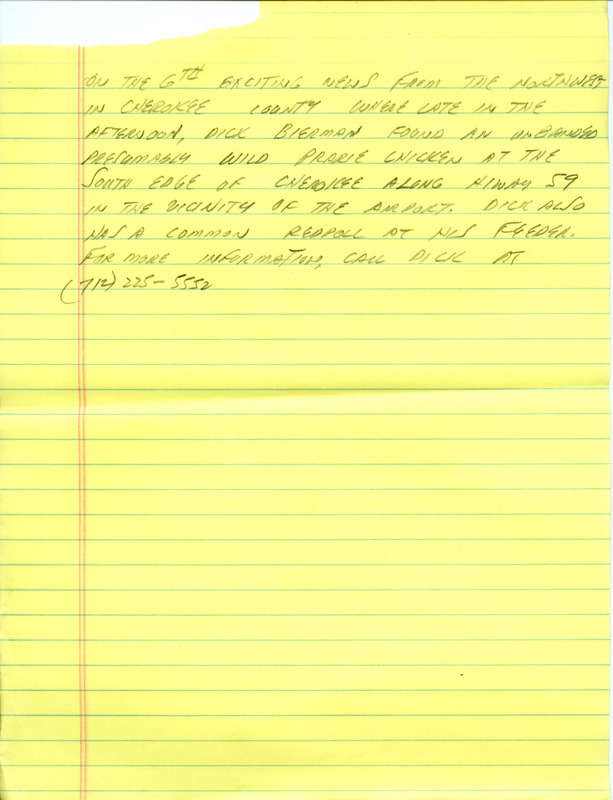 ON THE 6TH EXCITING NEWS FROM THE NORTHWEST
IN CHEROKEE COUNTY WHERE LATE IN THE
AFTERNOON, DICK BIERMAN FOUND AN UNBANDED
PRESUMABLY WILD PRARIE CHICKEN AT THE
SOUTH EDGE OF CHEROKEE ALONG HIWAY 59
IN THE VICINITY OF THE AIRPORT. DICK ALSO
HAS A COMMON REDPOLL AT HIS FEEDER.
FOR MORE INFORMATION, CALL DICK AT
(712) 225-5552